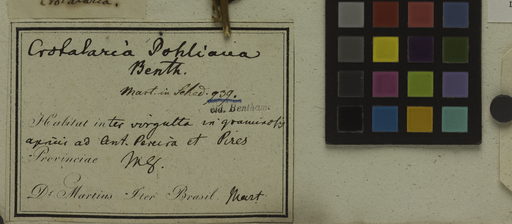 Crotalaria.
Crotalaria Pohliana
Benth.
Mart. in Sched. 939.
vid. Bentham.
Habitat inter virgulta in graminosis
apricis ad Ant. Pereira et Pires
Provinciae MG.
Dr. Martius Iter Brasil. Mart